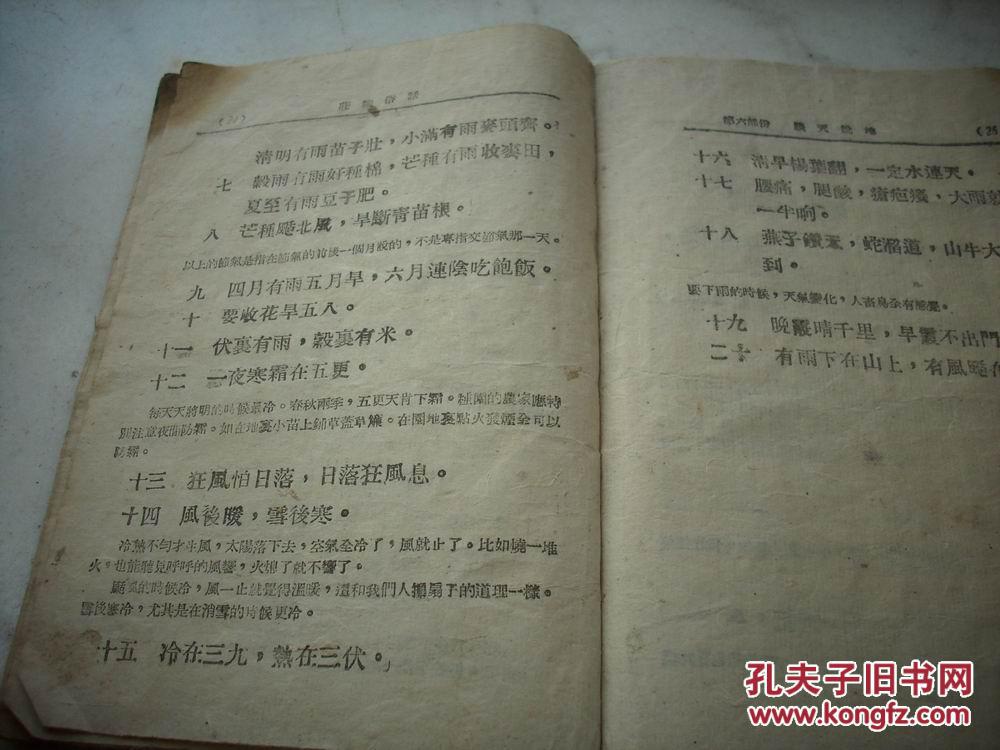 (28)
莊 俗話
清明有雨苗子壯，小滿有雨麥頭齊。
七 穀雨有雨好種棉，芒種有雨收麥田，
夏至有雨豆子肥。
八 芒種颳北風，旱斷青苗根。
以上的節氣是指在節氣的前後一個月說的，不是專指交節氣那一天。
九 四月有雨五月旱，六月連陰吃飽飯。
十 要收花旱五八。
十一 伏裏有雨，穀裏有米。
十二 一夜寒霜在五更。
每天天將明的時候最冷。春秋兩季，五更天肯下霜。種園的農家應特
別注意夜間防霜。如在地裏小苗上鋪草蓋草簾。在園地裏點火發煙全可以
防霜。
十三 狂風怕日落，日落狂風息。
十四 風後暖，雪後寒。
冷熱不勻才生風，太陽落下去，空氣全冷了，風就止了。比如燒一堆
火，也能聽見呼呼的風響，火熄了就不響了。
颳風的時候冷，風一止就覺得溫暖，這和我們人搧扇子的道理一樣。
雪後寒冷，尤其是在消雪的時候更冷。
十五 冷在三九，熱在三伏。
第六部份 談天說地
十六 清早 翻，一定水連天。
十七 腰痛，腿酸，瘡疤癢，大雨
一半晌。
十八 燕子鑽天，蛇溜道，山牛大
到。
要下雨的時候，天氣變化，人畜鳥全有感覺。
十九 晚霞晴千里，早霞不出門
二十 有雨下在山上，有風颳在
孔夫子旧书网
www.kongfz.com